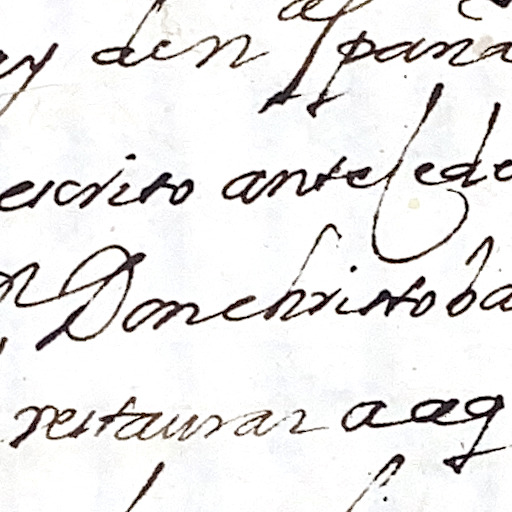 ey den españa
escrito antelede
n Donchristoba
restaurar aaq